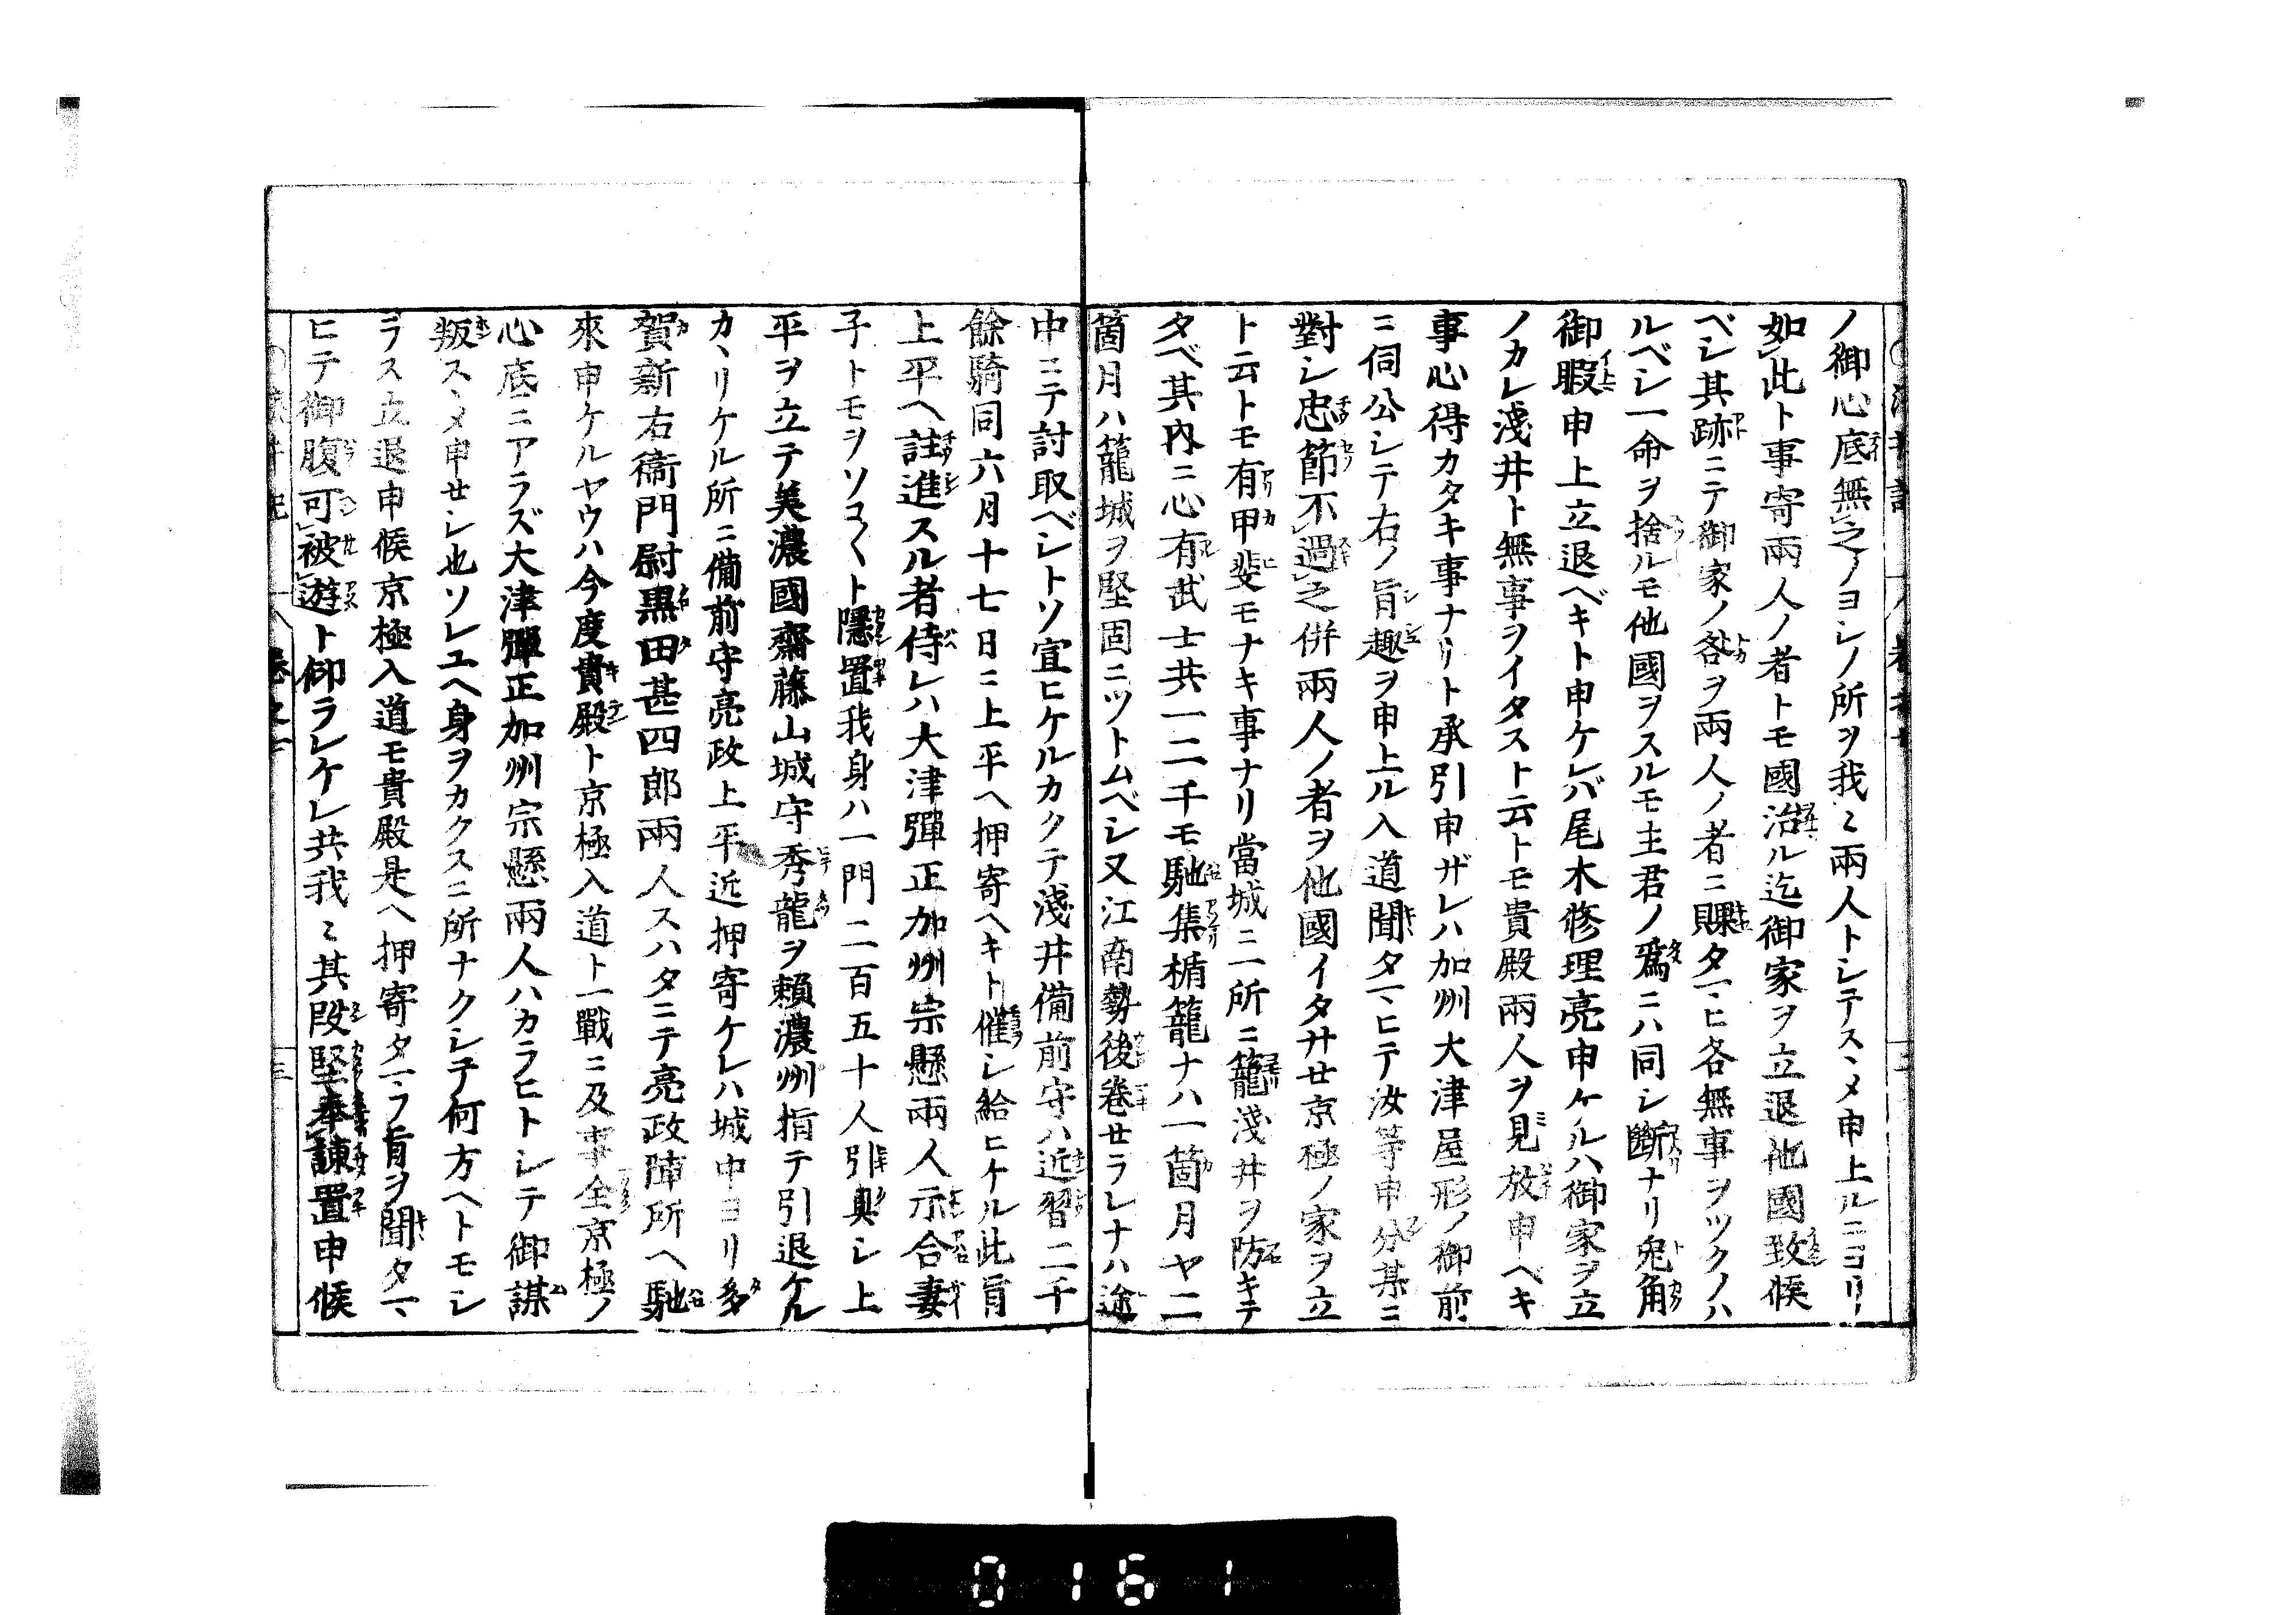 ノ御心底無之ノヨシノ所ヲ我ミ兩人トシテスヽメ申上ルニヨリ
如此ト事寄兩人ノ者トモ國治ル迄御家ヲ立退他國致候
ベシ其跡ニテ御家ノ咎ヲ兩人ノ者ニ賜タマヒ各無事ヲツクノハ
ルベシ一命ヲ捨ルモ他國ヲスルモ主君ノ爲ニハ同シ斷ナリ兎角
御暇申上立退ベキト申ケレバ尾木修理亮申ケルハ御家ヲ立
ノカレ淺井ト無事ヲイタスト云トモ貴殿兩人ヲ見放申ヘキ
事心得カタキ事ナリト承引申ザレハ加州大津屋形ノ御前
ニ伺公シテ右ノ旨趣ヲ申上ル入道聞タマヒテ汝等申分某ニ
對シ忠節不過之併兩人ノ者ヲ他國イタサセ京極ノ家ヲ立
ト云トモ有甲斐モナキ事ナリ當城ニ一所ニ籠淺井ヲ防キテ
タベ其內ニ心有武士共一二千モ馳集楯籠ナハ一箇月ヤ二
箇月ハ籠城ヲ堅固ニツトムベシ又江南勢後卷セラレナハ途
中ニテ討取ベシトソ宣ヒケルカクテ淺井備前守ハ近習二千
餘騎同六月十七日ニ上平ヘ押寄ヘキト催シ給ヒケル此旨
上平ヘ註進スル者侍レハ大津彈正加州宗懸兩人示合妻
子トモヲソコ〱ト隱置我身ハ一門二百五十人引與シ上
平ヲ立テ美濃國齋藤山城守秀龍ヲ賴濃州指テ引退ケル
カヽリケル所ニ備前守亮政上平近押寄ケレハ城中ヨリ多
賀新右衞門尉黑田甚四郎兩人スハタニテ亮政陣所ヘ馳
來申ケルヤウハ今度貴殿ト京極入道ト一戰ニ及事全京極ノ
心底ニアラズ大津彈正加州宗懸兩人ハカラヒトシテ御謀
叛スヽメ申セシ也ソレユヘ身ヲカクスニ所ナクシテ何方ヘトモシ
ラス立退申候京極入道モ貴殿是ヘ押寄タマフ旨ヲ聞タマ
ヒテ御腹可被遊ト仰ラレケレ共我ミ其段堅奉諫置申候